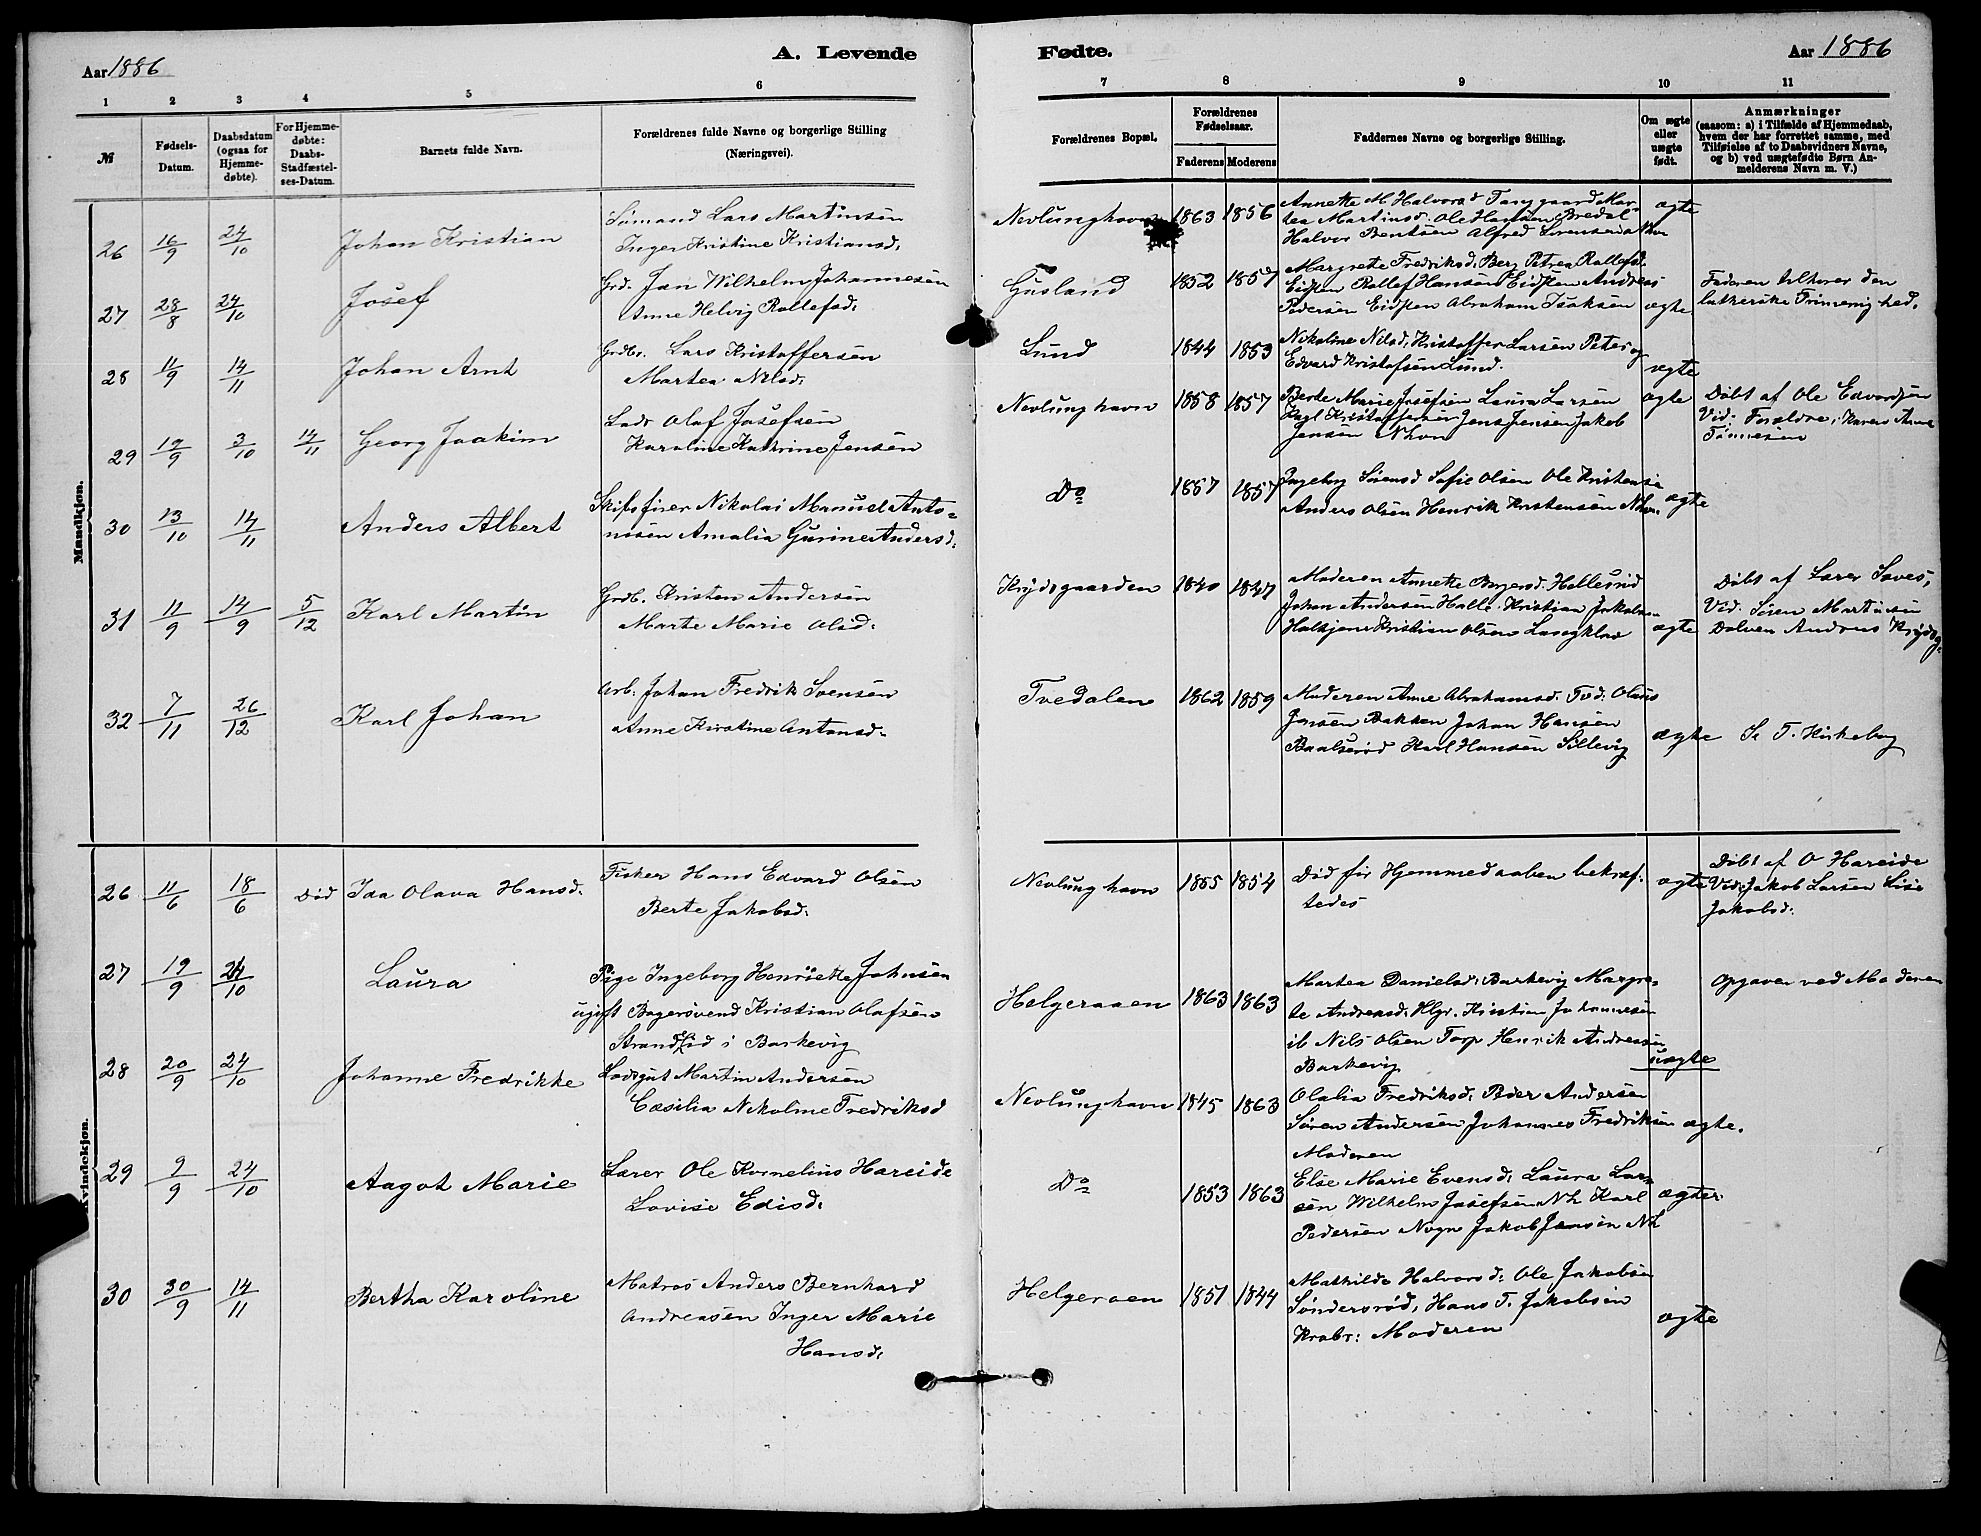 Aar 1886
A. Levende
1 2 3 4 5 6
№
Fødsels-Datum.
Daabsdatum (ogsaa for Hjemme-døbte).
For Hjemme-døbte: Daabs-Stadfæstel-ses-Datum.
Barnets fulde Navn.
Forældrenes fulde Navne og borgerlige Stilling
(Næringsvei).
Mandkjøn.
26 16/9 24/10 Johan Kristian
Sømand Lars Martinsen
Inger Kristine Kristiansd.
27 28/8 24/10 Josef
Grd. Jan Wilhelm Johannesen
Anne Helvig Rollefsd.
28 11/9 14/11 Johan Arnt
Grdbr. Lars Kristoffersen
Martea Nilsd.
29 19/9 3/10 14/11 Georg Joakim
Lods Olaf Josefsen
Karoline Kathrine Jensen
30 13/10 14/11 Anders Albert
Skibsfører Nikolai Manuel Anto-
nisen Amalia Gurine Andersd.
31 11/9 14/9 5/12 Karl Martin
Grdb. Kristen Andersen
Marte Marie Olsd.
32 7/11 26/12 Karl Johan
Arb. Johan Fredrik Svensen
Anne Kirstine Antonsd.
Kvindekjøn.
26 11/6 18/6 Død Ida Olava Hansd.
Fisker Hans Edvard Olsen
Berte Jakobsd.
27 19/9 24/10 Laura
Pige Ingeborg Henriette Johnsen
ugift Bagersvend Kristian Olafsen
i Barkevig
28 20/9 24/10 Johanne Fredrikke
Lodsgut Martin Andersen
Cæsilia Nikoline Fredriksd
29 9/9 24/10 Aagot Marie
Lærer Ole Kornelius Hareide
Lovise Edisd.
30 30/9 14/11 Bertha Karoline
Matros Anders Bernhard
Andreasen Inger Marie
Hansd.
Fødte.
Aar 1886
7 8 9 10 11
Forældrenes Bopæl.
Forældrenes Fødselsaar.
Faderens Moderens
Faddernes Navne og borgerlige Stilling.
Om ægte eller uægte født.
Anmærkninger
(saasom: a) i Tilfælde af Hjemmedaab, hvem der har forrettet samme, med Tilføielse af to Daabsvidners Navne, og b) ved uægtefødte Børn An-melderens Navn m. V.)
Nevlunghavn 1863 1856
Annette M Halvorsd Tanggaard Mar-
tea Martinsd. Ole Hansen Bredal
Halvor Bentsen Alfred Sørensen
ægte
Gusland 1852 1857
Margrete Fredriksd. Berg Petrea Rollefsd.
Eidsten Rollef Hansen Eidsten Andreas
Pedersen Eidsten Abraham Isaksen
ægte
Faderen tilhører den
lutherske Frimenighed.
Lund 1844 1853
Nikoline Nilsd. Kristoffer Larsen Peter og
Edvard Kristofsen Lund.
ægte
Nevlunghavn 1858 1857
Berte Marie Josefsen Laura Larsen
Karl Kristoffersen Jens Jensen Jakob
Jensen Nhvn
ægte
Døbt af Ole Edvardsen
Vid: Forældre,
Tønnesen
Do 1857 1857
Ingeborg Sørensd Sofie Olsen Ole Kristensen
Anders Olsen Henrik Kristensen Nhvn.
ægte
Krydsgaarden 1840 1847
Moderen Annette Borgersd. Hallesrød
Johan Andersen Halle. Kristian Jakobsen
Kristian Olsen
ægte
Døbt af Lærer
Vid. Søren Martinsen
Dolven Andreas Krydsg.
Tvedalen 1862 1859
Moderen Anne Abrahamsd. Tvd. Olaus
Jensen Bakken Johan Hansen
Karl Hansen Sillevig
ægte
St T. Kirkebog
Nevlunghavn 1855 1854
Død før Hjemmedaaben bekræf-
tedes
ægte
Døbt af O Hareide
Vid: Jakob Larsen Lise
Jakobsd.
Helgeraaen 1863 1863
Martea Danielsd. Barkevig Margre-
te Andreasd. Hlgr. Kristian Johannesen
ib Nils Olsen Torp Henrik Andreasen
Barkevig
uægte
Opgaven ved Moderen
Nevlunghavn 1845 1863
Olalia Fredriksd. Peder Andersen
Søren Andersen Johannes Fredriksen
Moderen
ægte.
Do 1853 1863
Else Marie Evensd. Laura Lar-
sen Wilhelm Josefsen Nh Karl
Pedersen Jakob Jensen Nh
ægte
Helgeroen 1851 1844
Mathilde Halvorsd. Ole Jakobsen
Søndersrød, Hans T. Jakobsen
Krabr: Moderen
ægte